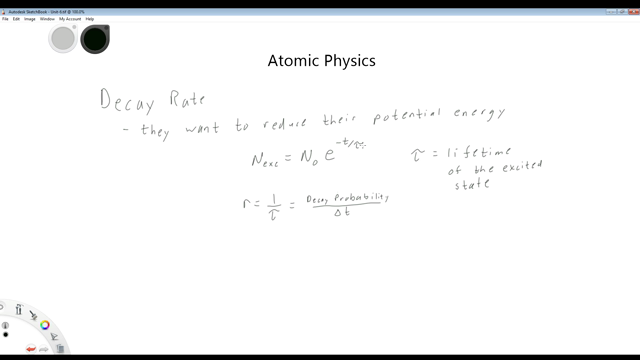 Autodesk SketchBook - Unit 6.tif @ 100.0%
File Edit Image Window My Account Help
Atomic Physics
Decay Rate
- they want to reduce their potential energy
N_exc = N_0 e^{-t/τ}
τ = lifetime
of the excited
state
r = 1/τ = Decay Probability/Δt